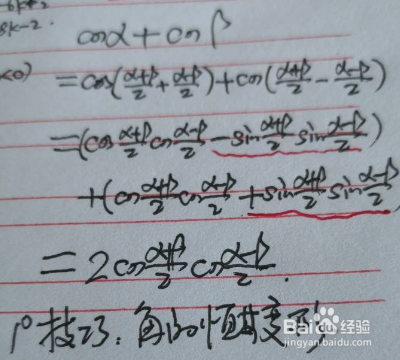 -6k+2
8k-2.
<0)
cosα+cosβ
=cos(α+β/2+α-β/2)+cos(α+β/2-α-β/2)
=(cos α+β/2 cos α-β/2 -sin α+β/2 sin α-β/2)
+(cos α+β/2 cos α-β/2 +sin α+β/2 sin α-β/2)
=2cos α+β/2 cos α-β/2.
1°技巧:角的恒等变形
Baidu经验
jingyan.baidu.com